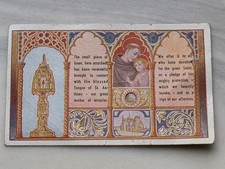 The small piece of
linen, here attached
has been reverently
brought to contact
with the blessed
tongue of St. An-
thony - our great
worker of miracles.
We offer it to all
who have reverence
for the great Saint
as a pledge of his
mighty protection
which we heartily
and as a
sign of our affection.